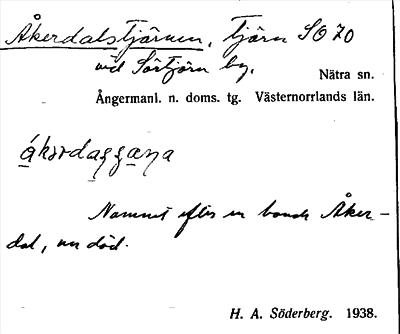 Åkerdalstjärnen, tjärn SO 70
vid Sörtjärn by.
Nätra sn.
Ångermanl. n. doms. tg. Västernorrlands län.
Namnet efter en bonde Åker-
dal, nu död.
H. A. Söderberg. 1938.